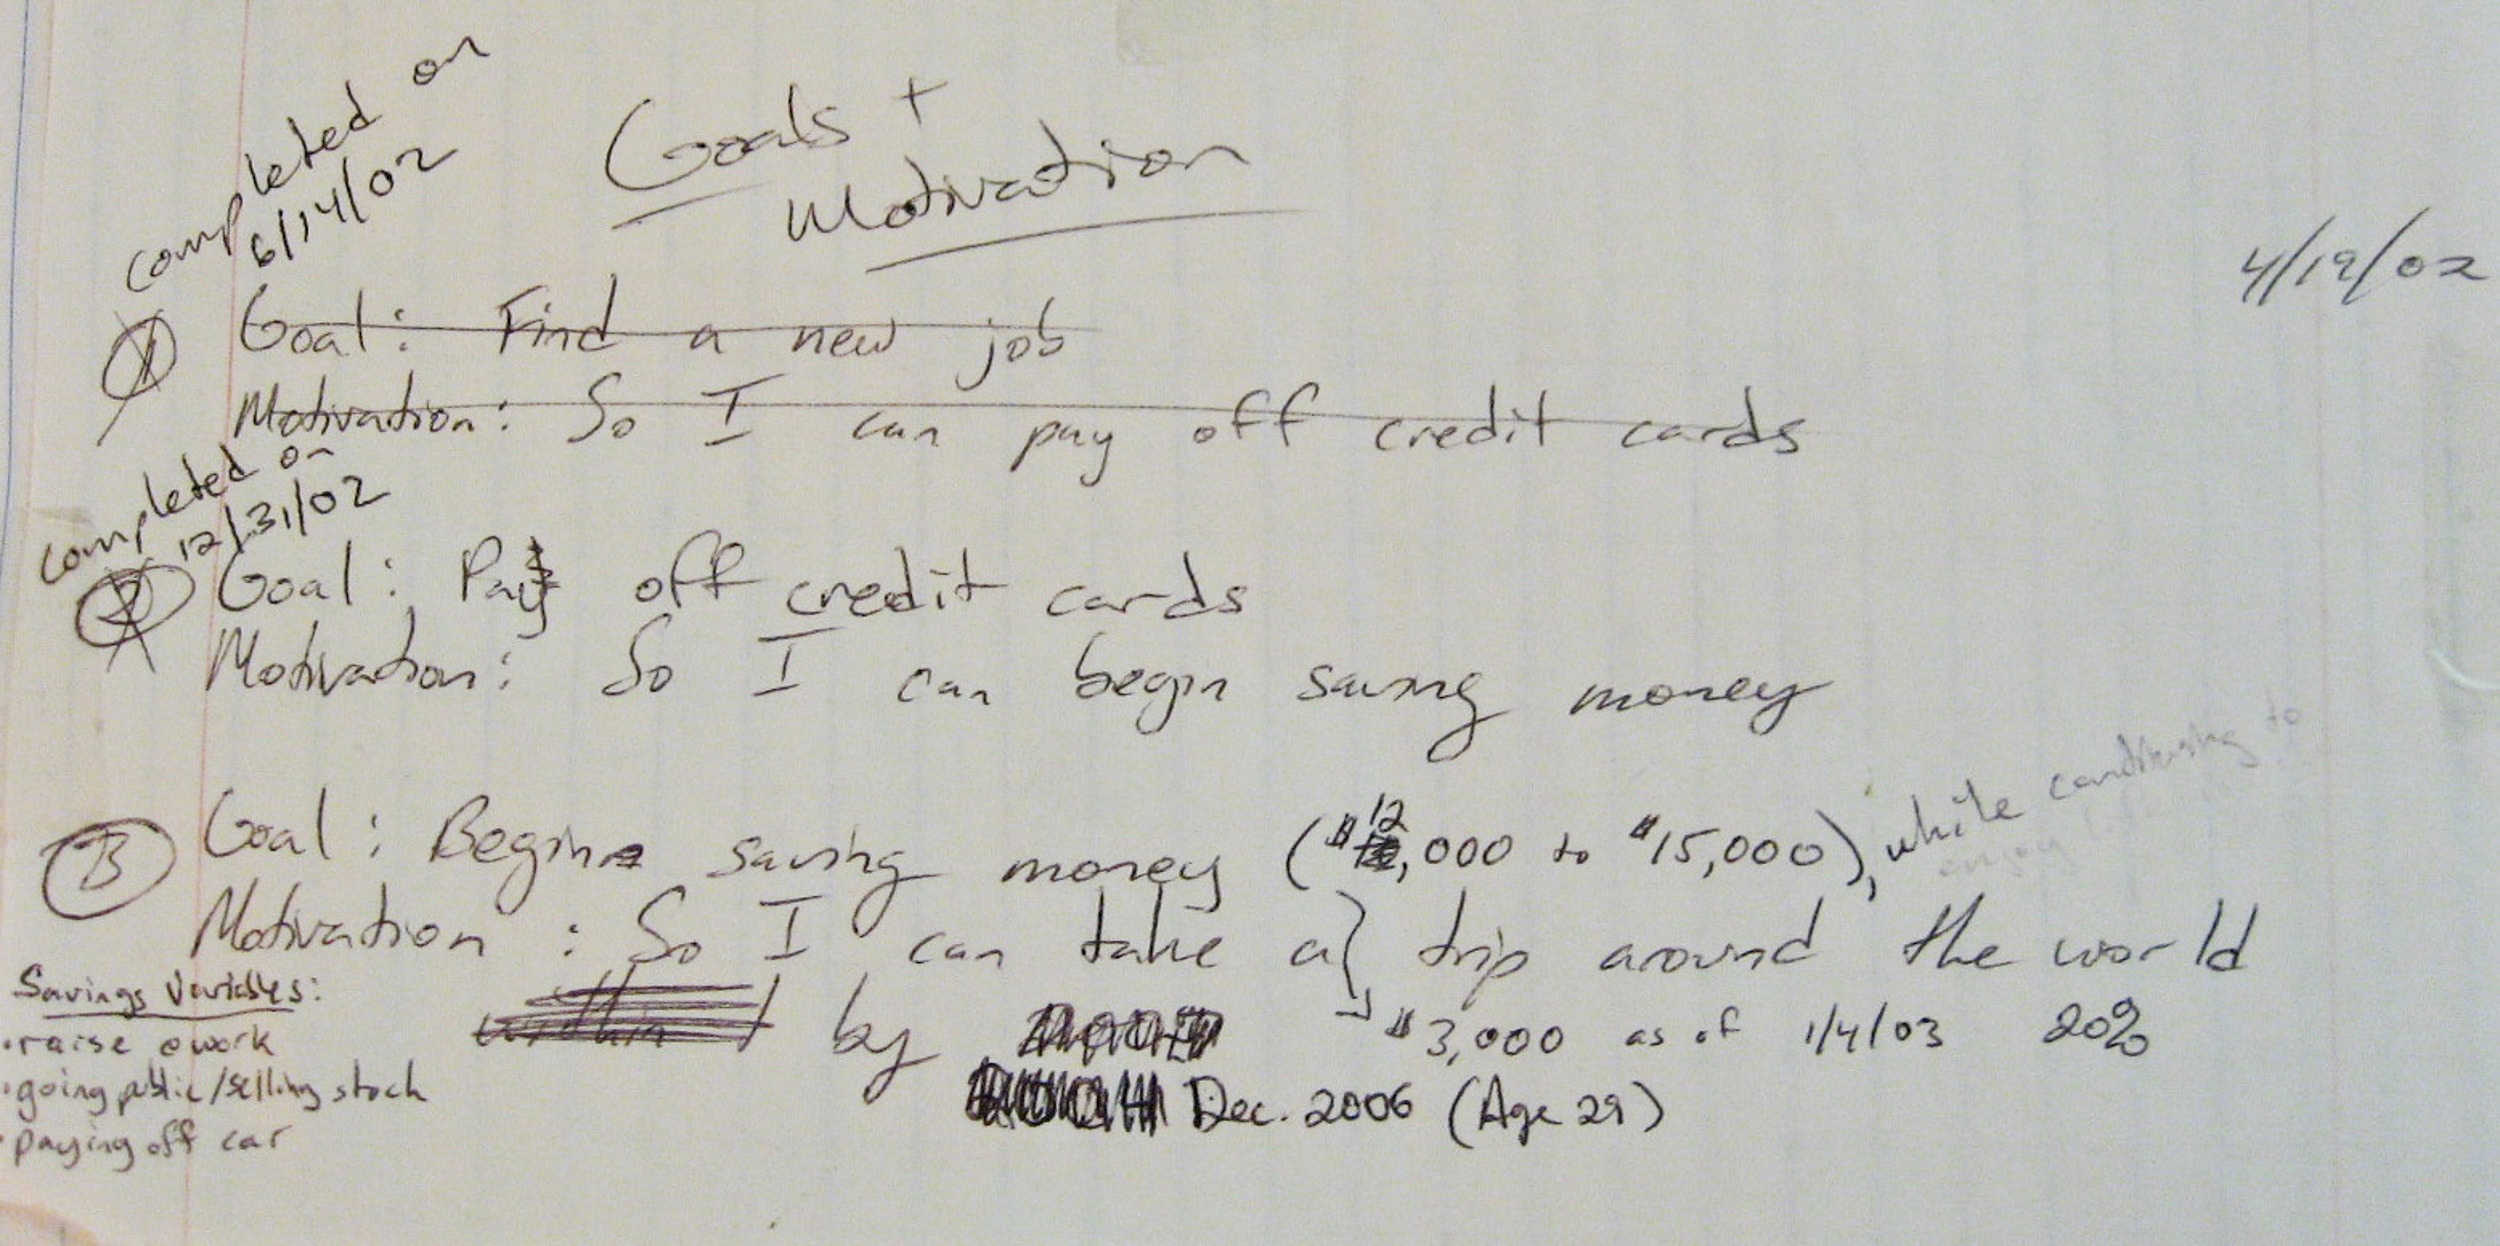 Goals +
Motivation
4/19/02
completed on
6/14/02
1 Goal: Find a new job
Motivation: So I can pay off credit cards
completed on
12/31/02
2 Goal: Pay off credit cards
Motivation: So I can begin saving money
3 Goal: Begin saving money ($12,000 to $15,000), while continuing to
enjoy
Motivation: So I can take a trip around the world
within by
$3,000 as of 1/4/03 20%
Dec. 2006 (Age 29)
Savings Variables:
• raise @ work
• going public/selling stock
• paying off car